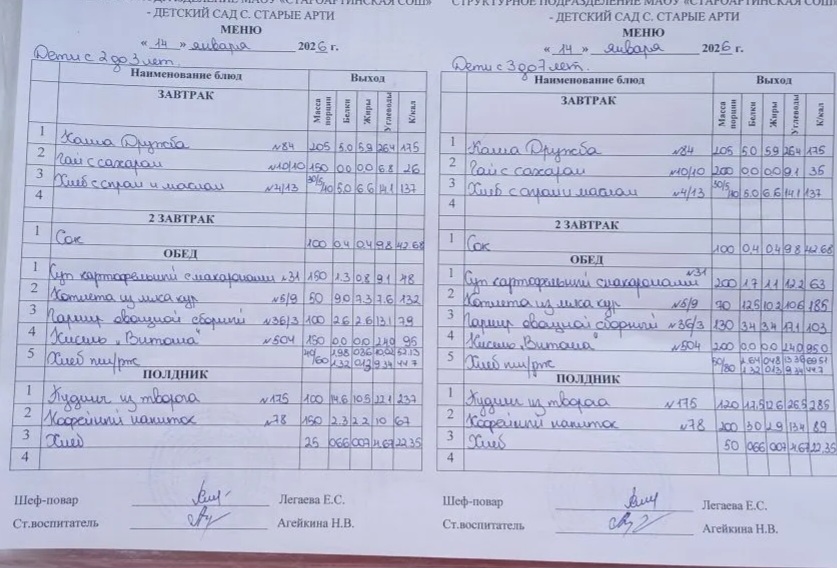 СТРУКТУРНОЕ ПОДРАЗДЕЛЕНИЕ МАОУ «СТАРОАРТИНСКАЯ СОШ»
- ДЕТСКИЙ САД С. СТАРЫЕ АРТИ
МЕНЮ
« 14 » января 2026 г.
Дети с 2 до 3 лет.
Наименование блюд Выход
ЗАВТРАК Масса порции Белки Жиры Углеводы К/кал
1 Каша Дружба №84 205 5.0 5.9 26.4 175
2 Чай с сахаром №10/10 150 0.0 0.0 6.8 26
3 Хлеб с сыром и маслом №4/13 30/5/10 5.0 6.6 14.1 137
4
2 ЗАВТРАК
1 Сок 100 0.4 0.4 9.8 42.68
ОБЕД
1 Суп картофельный с макаронами №31 150 1.3 0.8 9.1 48
2 Котлета из мяса кур №5/9 50 9.0 7.3 7.6 132
3 Гарнир овощной сборный №36/3 100 2.6 2.6 13.1 79
4 Кисель „Витошка" №504 150 0.0 0.0 24.0 95
5 Хлеб пш/рж 40/60
ПОЛДНИК
1 Пудинг из творога №175 100 14.6 10.5 22.1 237
2 Кофейный напиток №78 150 2.3 2.2 10 67
3 Хлеб 25 0.66 0.07 4.67 22.35
4
Шеф-повар Легаева Е.С.
Ст.воспитатель Агейкина Н.В.
СТРУКТУРНОЕ ПОДРАЗДЕЛЕНИЕ МАОУ «СТАРОАРТИНСКАЯ СОШ»
- ДЕТСКИЙ САД С. СТАРЫЕ АРТИ
МЕНЮ
« 14 » января 2026 г.
Дети с 3 до 7 лет.
Наименование блюд Выход
ЗАВТРАК Масса порции Белки Жиры Углеводы К/кал
1 Каша Дружба №84 205 5.0 5.9 26.4 175
2 Чай с сахаром №10/10 200 0.0 0.0 9.1 35
3 Хлеб с сыром и маслом №4/13 30/5/10 5.0 6.6 14.1 137
4
2 ЗАВТРАК
1 Сок 100 0.4 0.4 9.8 42.68
ОБЕД
1 Суп картофельный с макаронами №31 200 1.7 1.1 12.2 63
2 Котлета из мяса кур №5/9 70 12.5 10.2 10.6 185
3 Гарнир овощной сборный №36/3 130 3.4 3.4 17.1 103
4 Кисель „Витошка" №504 200 0.0 0.0 24.0 95.0
5 Хлеб пш/рж 50/80
ПОЛДНИК
1 Пудинг из творога №175 120 17.5 12.6 26.5 285
2 Кофейный напиток №78 200 3.0 2.9 13.4 89
3 Хлеб 50 0.66 0.07 4.67 22.35
4
Шеф-повар Легаева Е.С.
Ст.воспитатель Агейкина Н.В.